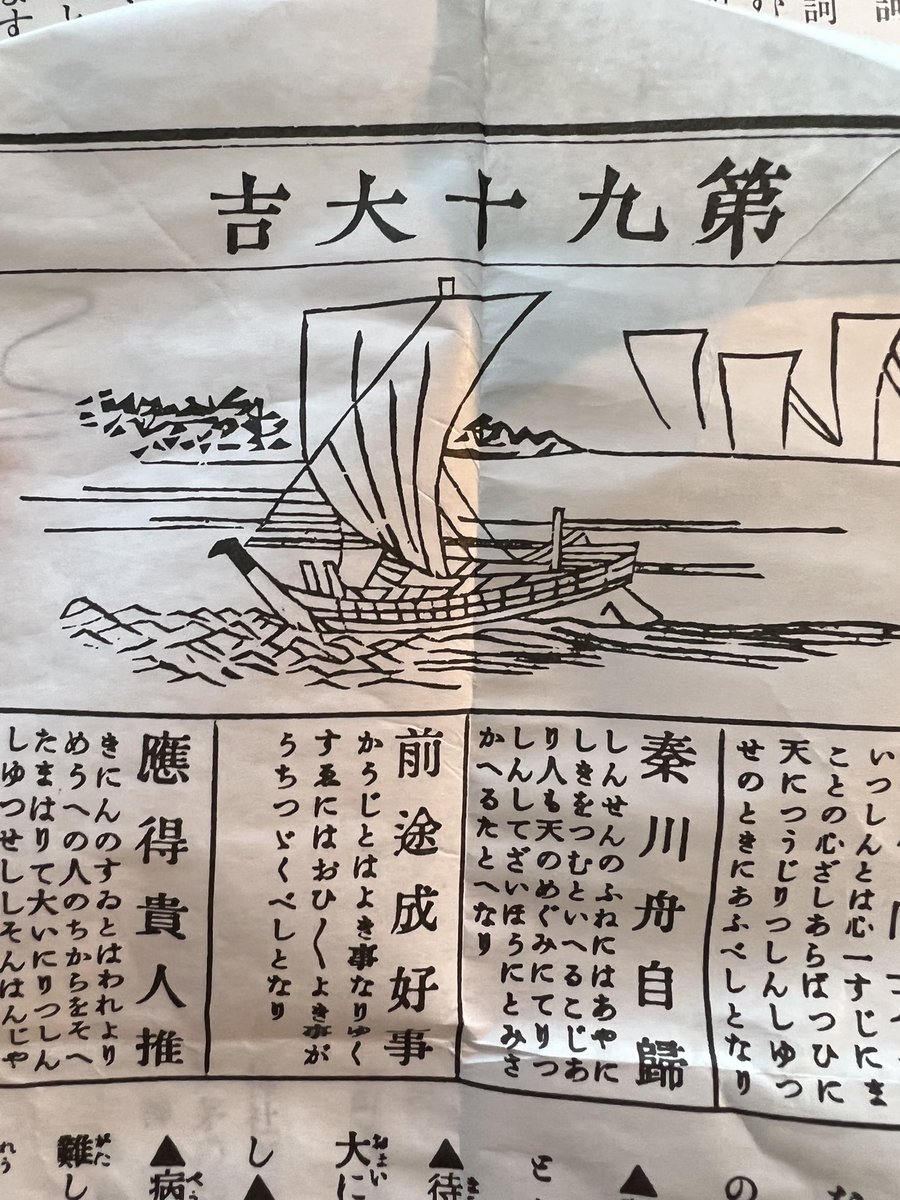 第九十大吉
いつしんとは心一すじにま
ことの心ざしあらばつひに
天につうじりつしんしゆつ
せのときにあふべしとなり
秦川舟自歸
しんせんのふねにはあやに
しきをつむといへるこじあ
り人も天のめぐみにてりつ
しんしてざいほうにとみさ
かへるたとへなり
前途成好事
かうじとはよき事なりゆく
すゑにはおひ〱よき事が
うちつゞくべしとなり
應得貴人推
きにんのすゐとはわれより
めうへの人のちからをそへ
たまはりて大いにりつしん
しゆつせししそんはんじや
の
▲
と
▲待
大に
し▲
▲病
難し